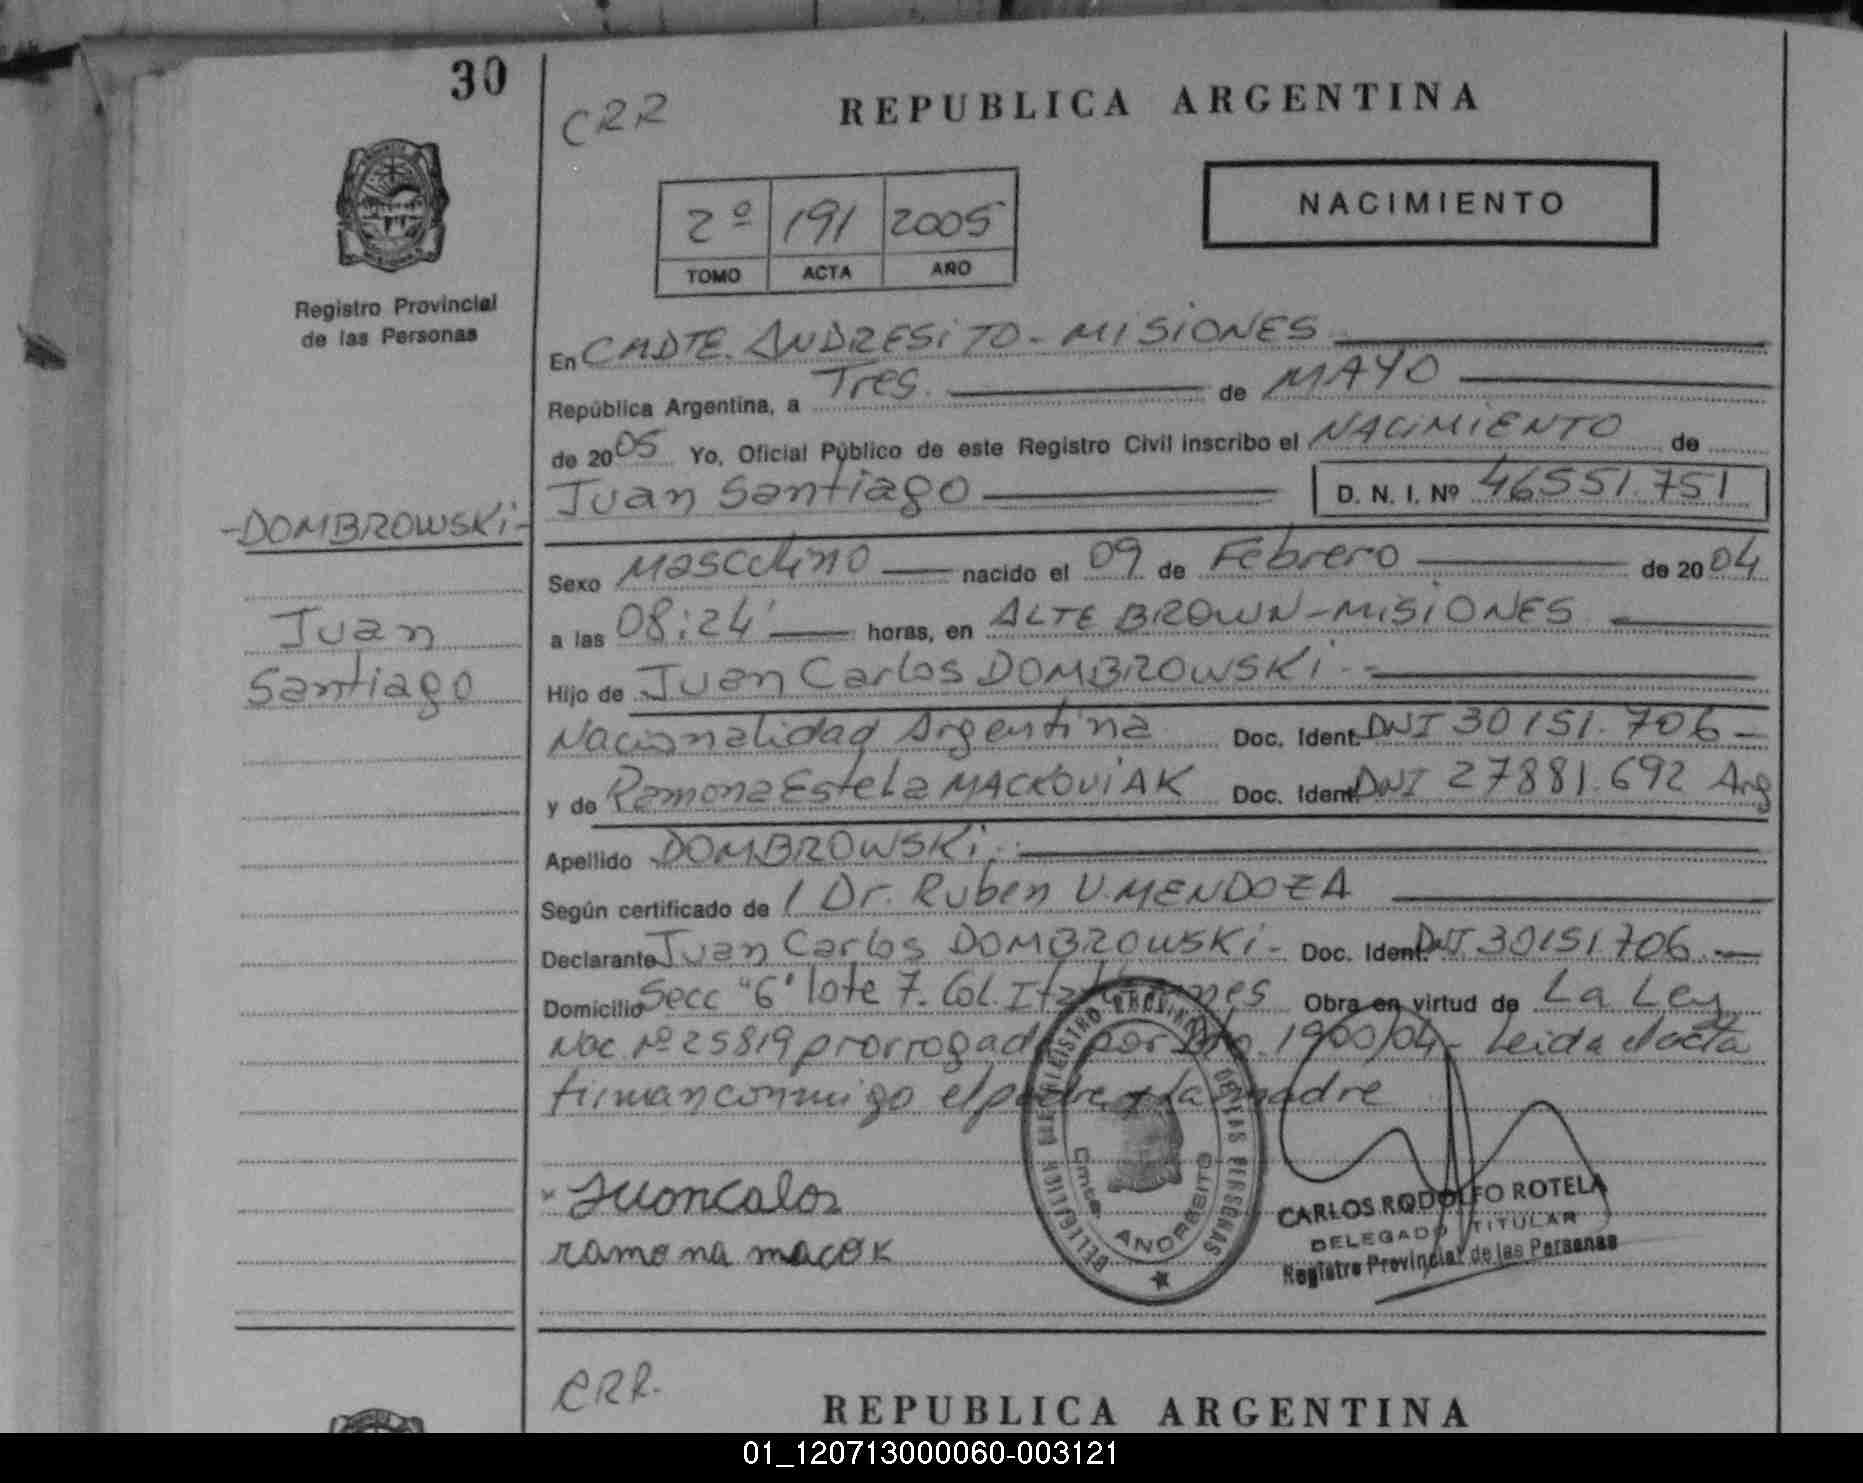 30
CRR
REPUBLICA ARGENTINA
2º 191 2005
TOMO ACTA AÑO
NACIMIENTO
Registro Provincial
de las Personas
En CMDTE. ANDRESiTO - MISIONES
República Argentina, a Tres. de MAYO
de 2005 Yo, Oficial Público de este Registro Civil inscribo el NACIMIENTO de
Juan Santiago D. N. I. Nº 46551.751
-DOMBROWSKi-
Juan
Santiago
Sexo Masculino nacido el 09 de Febrero de 2004
a las 08:24' horas, en ALTE BROWN-MISIONES
Hijo de Juan Carlos DOMBROWSKi -
Nacionalidad Argentina Doc. Ident. DNI 30151.706 -
y de Ramona Estela MACKOViAK Doc. Ident. DNI 27881.692 Arg
Apellido DOMBROWSKi.
Según certificado de / Dr. Ruben U. MENDOZA
Declarante Juan Carlos DOMBROWSKi - Doc. Ident. DNI 30151.706 -
Domicilio Secc "6" lote 7. Col. Obra en virtud de La Ley
Nac. Nº 25819 prorrogada por Dto. 1900/04 - Leida el acta
firman conmigo el padre y la madre
x Juoncalos
ramona macok
REGISTRO PROVINCIAL DE LAS PERSONAS
Cmte. ANDRESITO
CARLOS RODOLFO ROTELA
DELEGADO TITULAR
Registro Provincial de las Personas
CRR.
REPUBLICA ARGENTINA
01_120713000060-003121